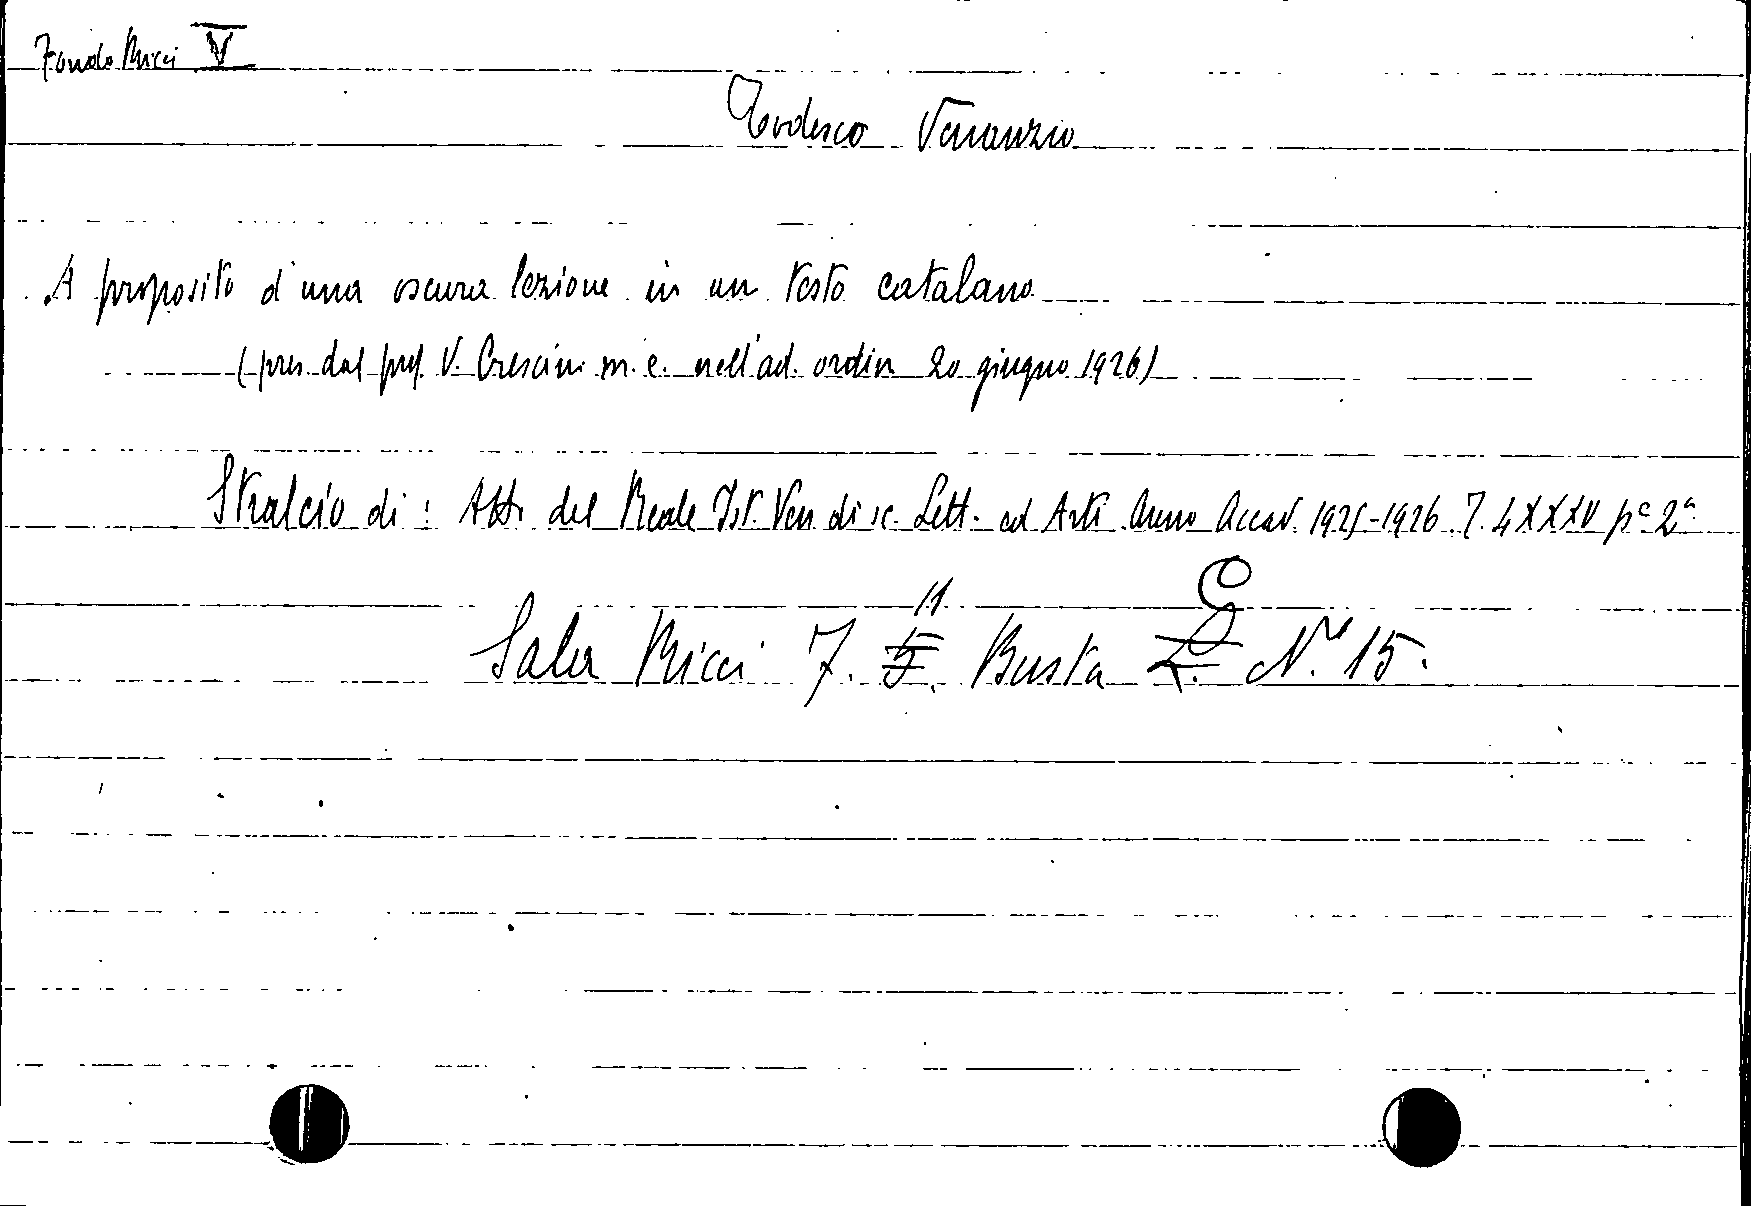 Fondo Ricci V
Todesco Venanzio
A proposito d'una oscura lezione in un testo catalano
(pres. dal prof. V. Crescini m. e. nell'ad. ordin 20 giugno 1926)
Stralcio di : Atti del Reale Ist. Ven di sc. Lett. ed Arti Anno Accad. 1925-1926 T. LXXXV pe 2a
11 C
Sala Ricci 7. 5. Busta N.º 15.